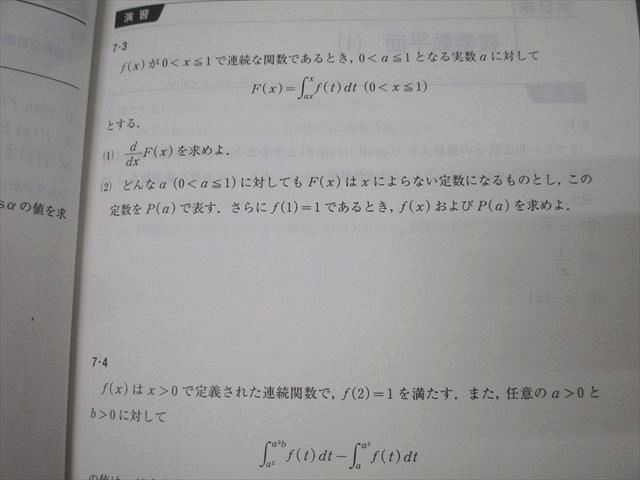 演習
7・3
f(x) が 0<x≦1 で連続な関数であるとき,0<a≦1 となる実数 a に対して
F(x)=∫_{ax}^{x} f(t)dt (0<x≦1)
とする.
(1) d/dx F(x) を求めよ.
(2) どんな a (0<a≦1) に対しても F(x) は x によらない定数になるものとし,この
定数を P(a) で表す.さらに f(1)=1 であるとき,f(x) および P(a) を求めよ.
sα の値を求
7・4
f(x) は x>0 で定義された連続関数で,f(2)=1 を満たす.また,任意の a>0 と
b>0 に対して
∫_{a²}^{a²b} f(t)dt−∫_{a}^{a²} f(t)dt